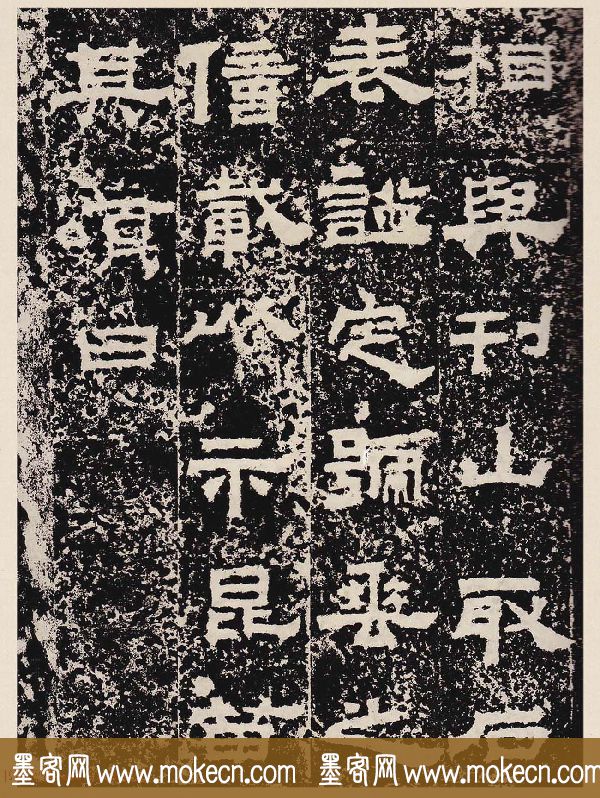 相與刊山取石
表謚定號垂之
億載以示昆苗
其頌曰
墨客网 www.mokecn.com 墨客网 www.mokecn.com